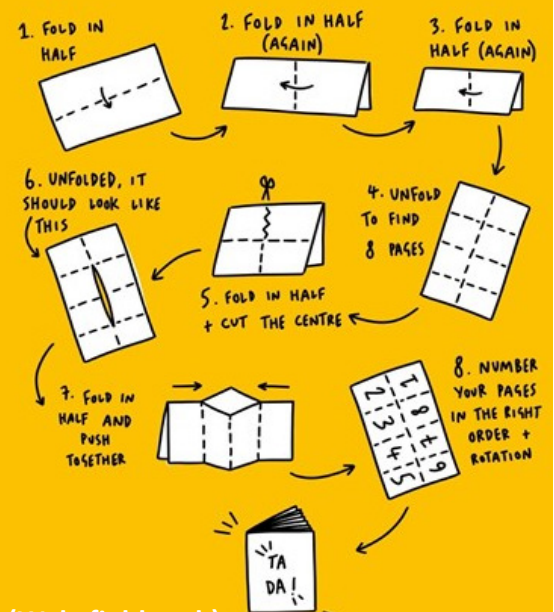 1. FOLD IN
HALF
2. FOLD IN HALF
(AGAIN)
3. FOLD IN
HALF (AGAIN)
4. UNFOLD
TO FIND
8 PAGES
5. FOLD IN HALF
+ CUT THE CENTRE
6. UNFOLDED, IT
SHOULD LOOK LIKE
THIS
7. FOLD IN
HALF AND
PUSH
TOGETHER
8. NUMBER
YOUR PAGES
IN THE RIGHT
ORDER +
ROTATION
1 8 7 6
2 3 4 5
TA
DA!